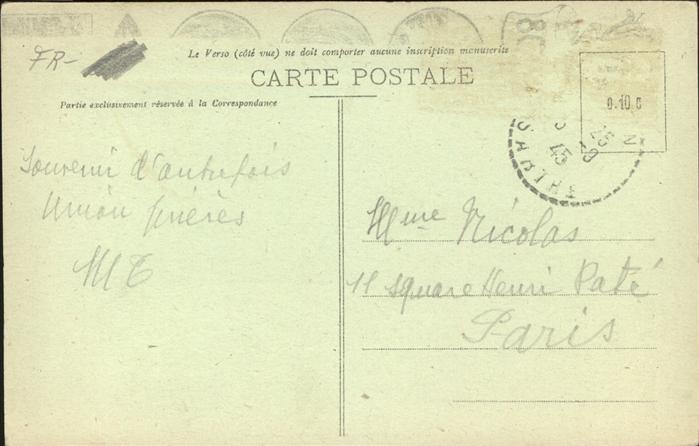 FR-
Le Verso (côté vue) ne doit comporter aucune inscription manuscrite
CARTE POSTALE
Partie exclusivement réservée à la Correspondance
0.10 c
Souvenir d'autrefois
Union prières
MT
Mme Nicolas
11 square Henri Paté
Paris